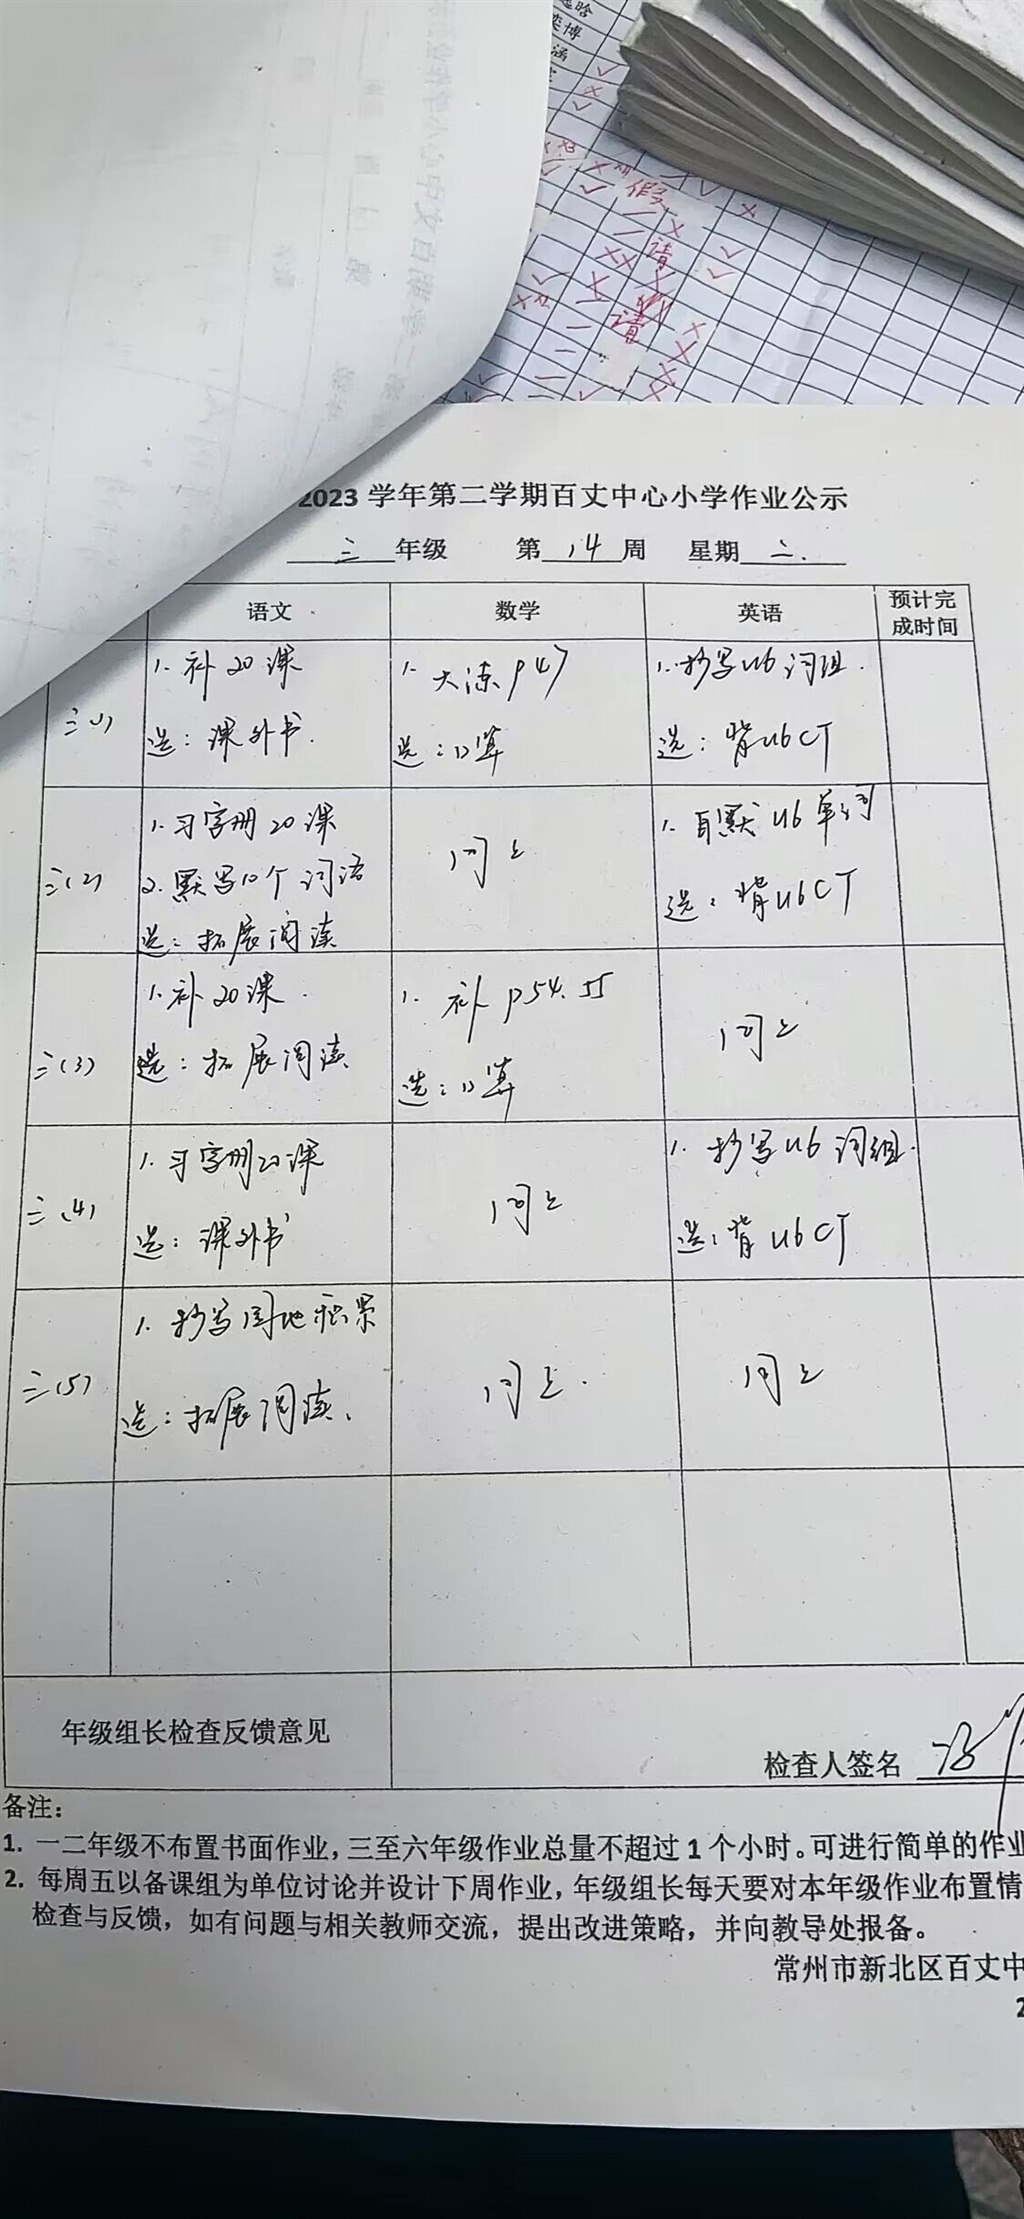 2023学年第二学期百丈中心小学作业公示
三年级 第14周 星期二.
语文 数学 英语 预计完成时间
三(1)
1. 补20课
选：课外书.
1. 大练P47
选：口算
1. 抄写U6词组.
选：背U6CT
三(2)
1. 习字册20课
2. 默写10个词语
选：拓展阅读
同上
1. 自默U6单词
选：背U6CT
三(3)
1. 补20课.
选：拓展阅读
1. 补P54.55
选：口算
同上
三(4)
1. 习字册20课
选：课外书
同上
1. 抄写U6词组.
选：背U6CT
三(5)
1. 抄写园地积累
选：拓展阅读.
同上.
同上
年级组长检查反馈意见
检查人签名
备注：
1. 一二年级不布置书面作业，三至六年级作业总量不超过1个小时。可进行简单的作业
2. 每周五以备课组为单位讨论并设计下周作业，年级组长每天要对本年级作业布置情
检查与反馈，如有问题与相关教师交流，提出改进策略，并向教导处报备。
常州市新北区百丈中